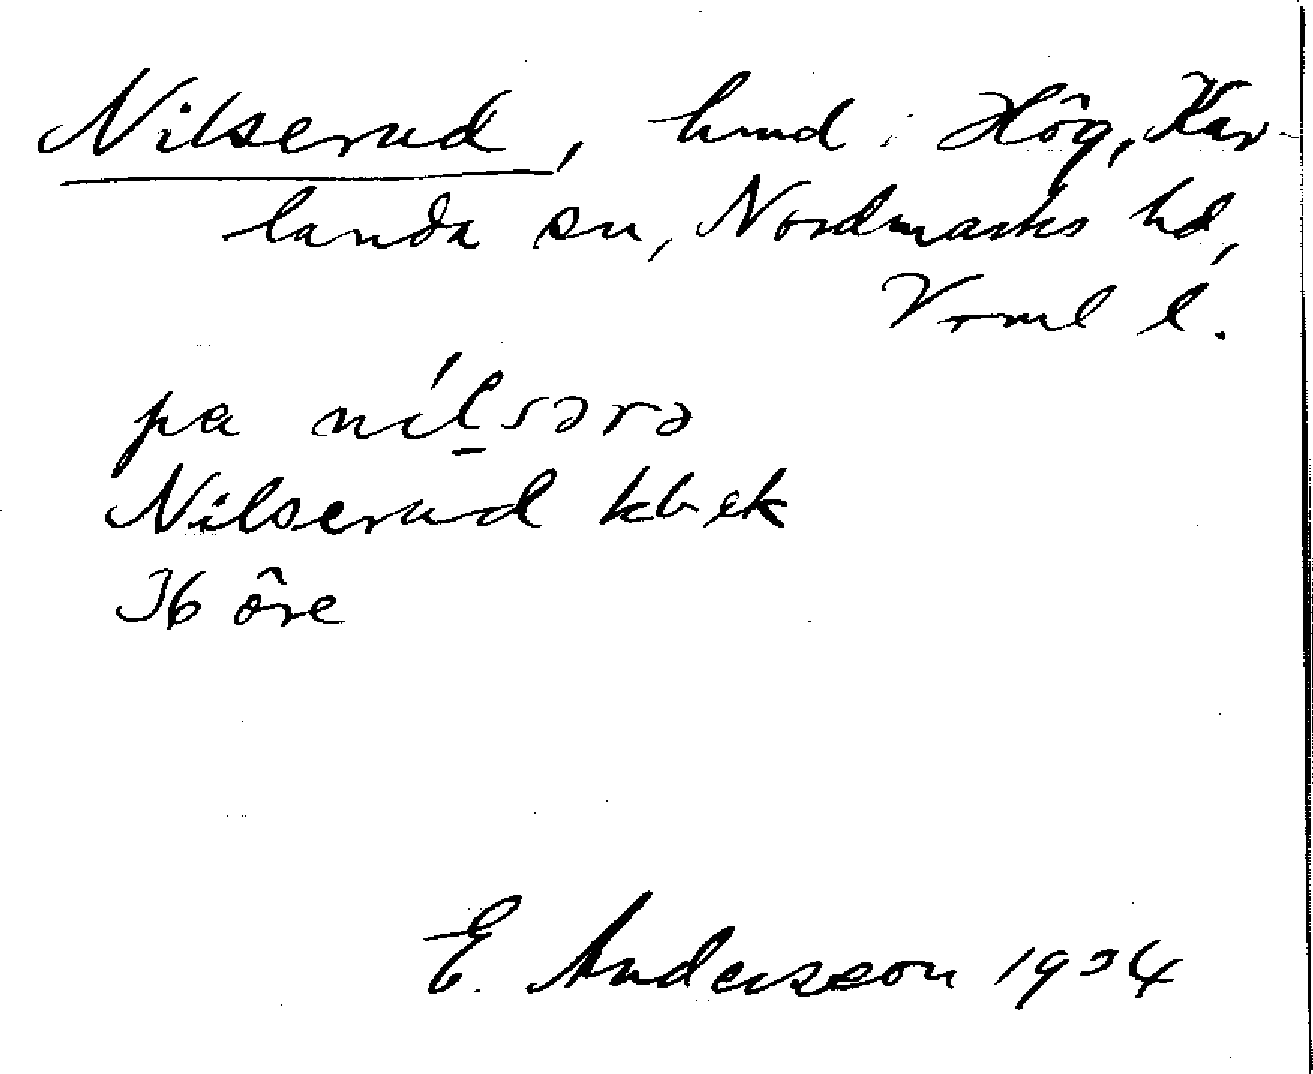 Nilserud, hmd i Hög, Kar-
landa sn, Nordmarks hd,
Vrml l.
pa nílsərə
Nilserud kbek
36 öre
E. Andersson 1934